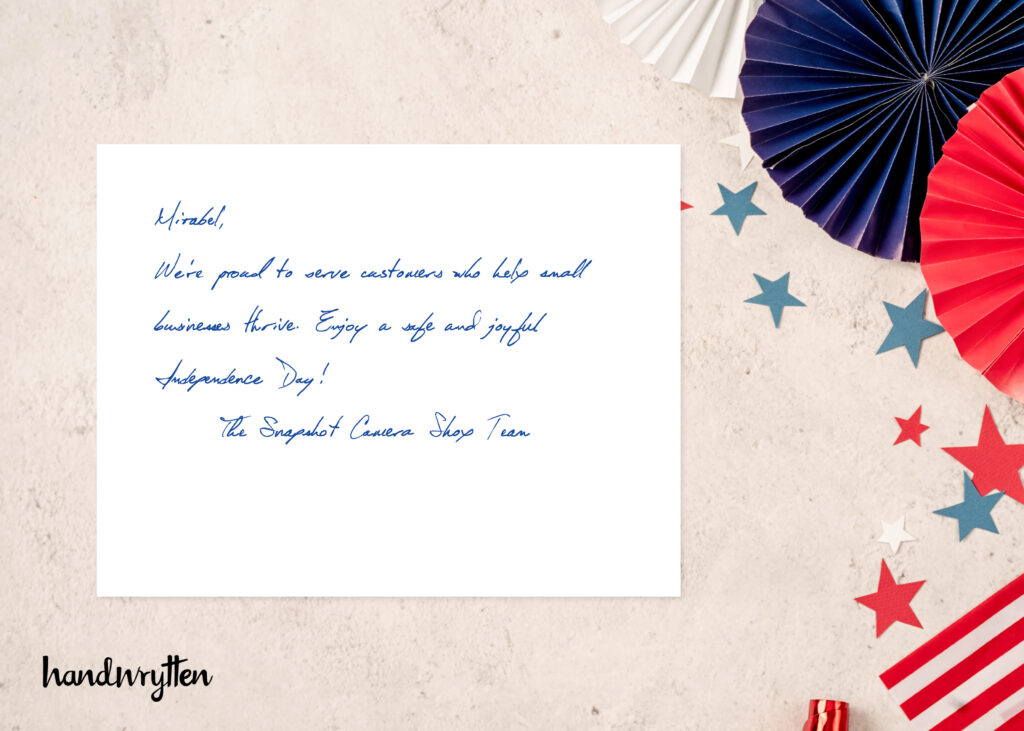 Mirabel,
We're proud to serve customers who help small
businesses thrive. Enjoy a safe and joyful
Independence Day!
The Snapshot Camera Shop Team
handwrytten